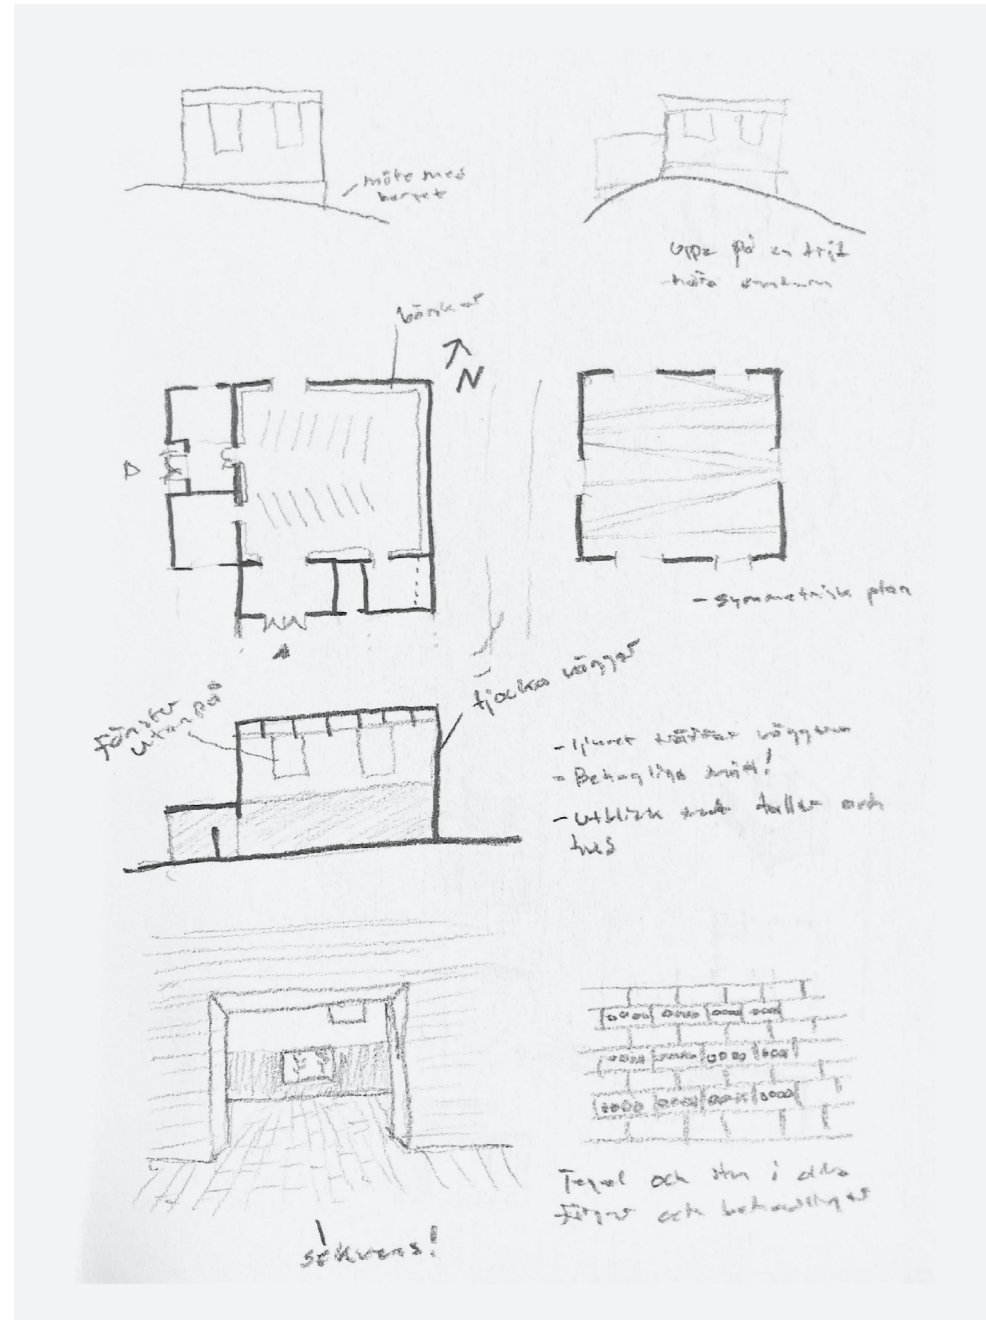 möte med
berget
uppe på en
bänkar
N
- symmetrisk plan
fönster
utanpå
tjocka väggar
- ljuset träffar väggen
- Behagliga mått!
- utblick mot tallar och
hus
Tegel och sten i olika
färger och behandlingar
sekvens!